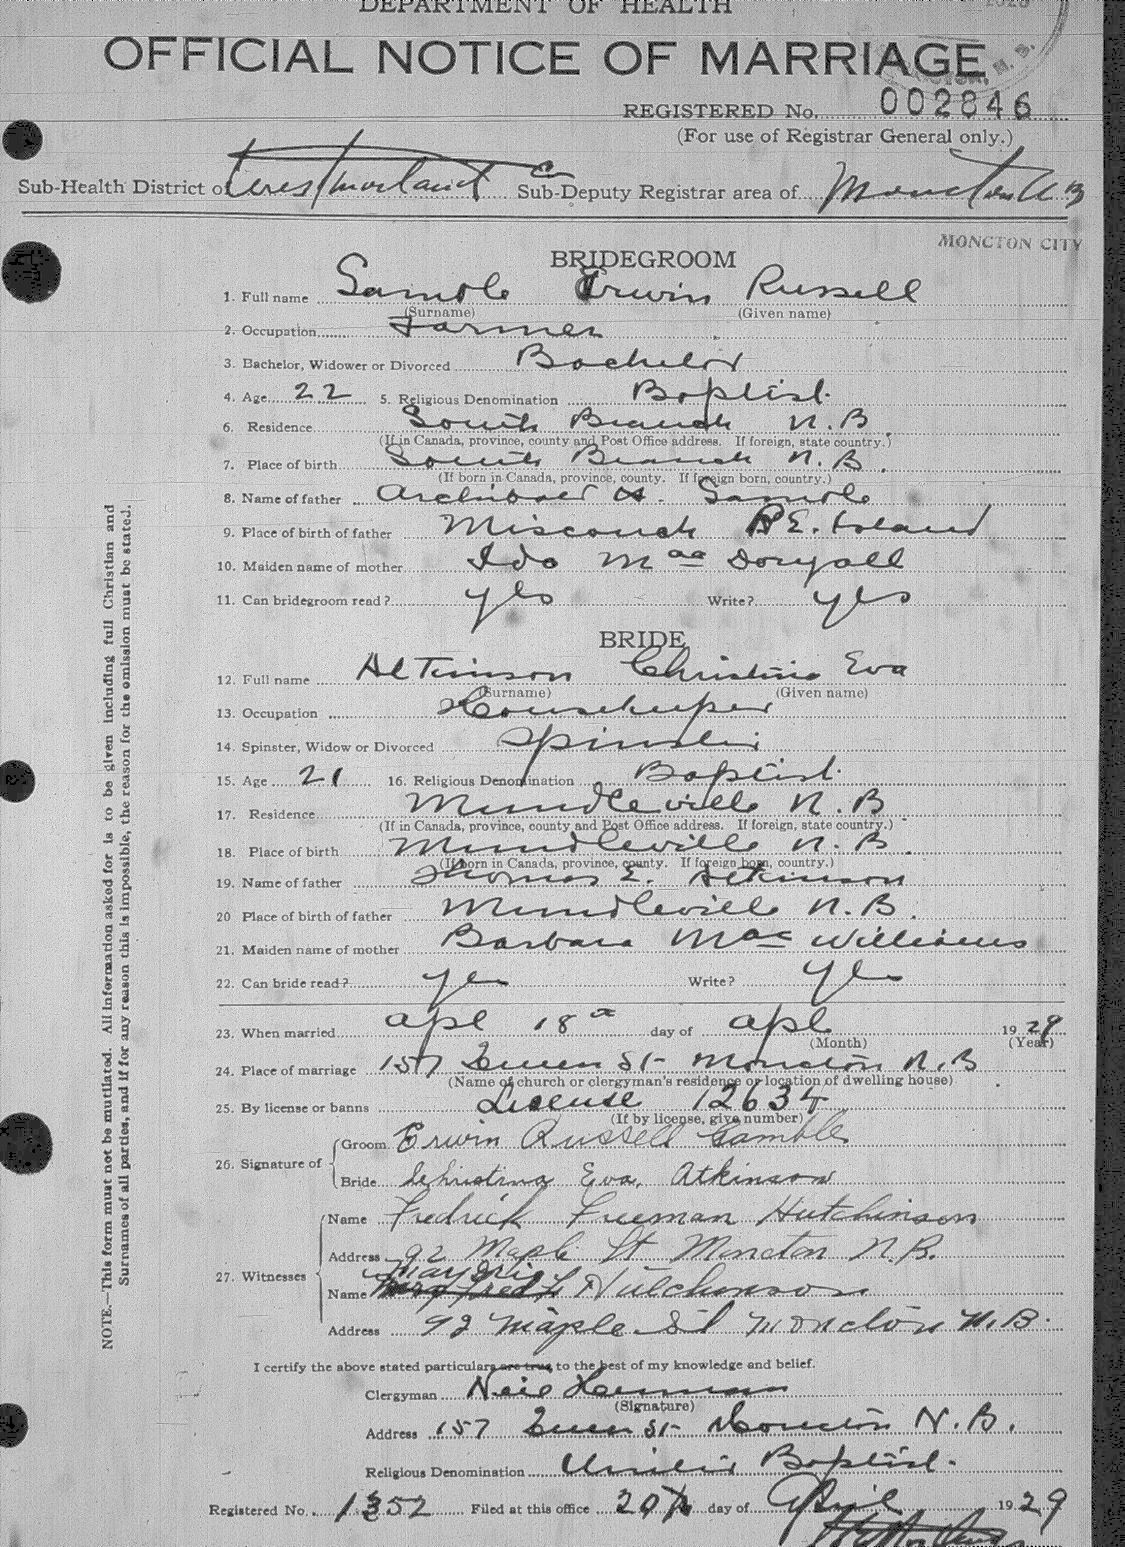 DEPARTMENT OF HEALTH
OFFICIAL NOTICE OF MARRIAGE
REGISTERED No. 002846
(For use of Registrar General only.)
Sub-Health District of Westmorland Co Sub-Deputy Registrar area of Moncton N B
MONCTON CITY
BRIDEGROOM
1. Full name Gamble Erwin Russell
(Surname) (Given name)
2. Occupation Farmer
3. Bachelor, Widower or Divorced Bachelor
4. Age 22 5. Religious Denomination Baptist.
6. Residence South Branch N.B.
(If in Canada, province, county and Post Office address. If foreign, state country.)
7. Place of birth South Branch N.B.
(If born in Canada, province, county. If foreign born, country.)
8. Name of father Archibald H. Gamble
9. Place of birth of father Miscouch P.E. Island
10. Maiden name of mother Ida Mac Dougall
11. Can bridegroom read? yes Write? yes
BRIDE
12. Full name Atkinson Christina Eva
(Surname) (Given name)
13. Occupation Housekeeper
14. Spinster, Widow or Divorced Spinster
15. Age 21 16. Religious Denomination Baptist.
17. Residence Mundleville N.B
(If in Canada, province, county and Post Office address. If foreign, state country.)
18. Place of birth Mundleville N.B.
(If born in Canada, province, county. If foreign born, country.)
19. Name of father Thomas E. Atkinson
20 Place of birth of father Mundleville N.B.
21. Maiden name of mother Barbara Mac Williams
22. Can bride read? yes Write? yes
23. When married apl 18th day of apl 1929
(Month) (Year)
24. Place of marriage 157 Queen St Moncton N.B
(Name of church or clergyman's residence or location of dwelling house)
25. By license or banns License 12634
(If by license, give number)
26. Signature of
Groom Erwin Russell Gamble
Bride Christina Eva. Atkinson
27. Witnesses
Name Fredrick Freeman Hutchinson
Address 92 Maple St Moncton N.B.
Name Mrs Fred F. Hutchinson
Address 92 Maple St Moncton N.B.
I certify the above stated particulars are true to the best of my knowledge and belief.
Clergyman Neil Herman
(Signature)
Address 157 Queen St Moncton N.B.
Religious Denomination United Baptist.
Registered No. 1352 Filed at this office 20th day of April 1929
NOTE.—This form must not be mutilated. All information asked for is to be given including full Christian and
Surnames of all parties, and if for any reason this is impossible, the reason for the omission must be stated.